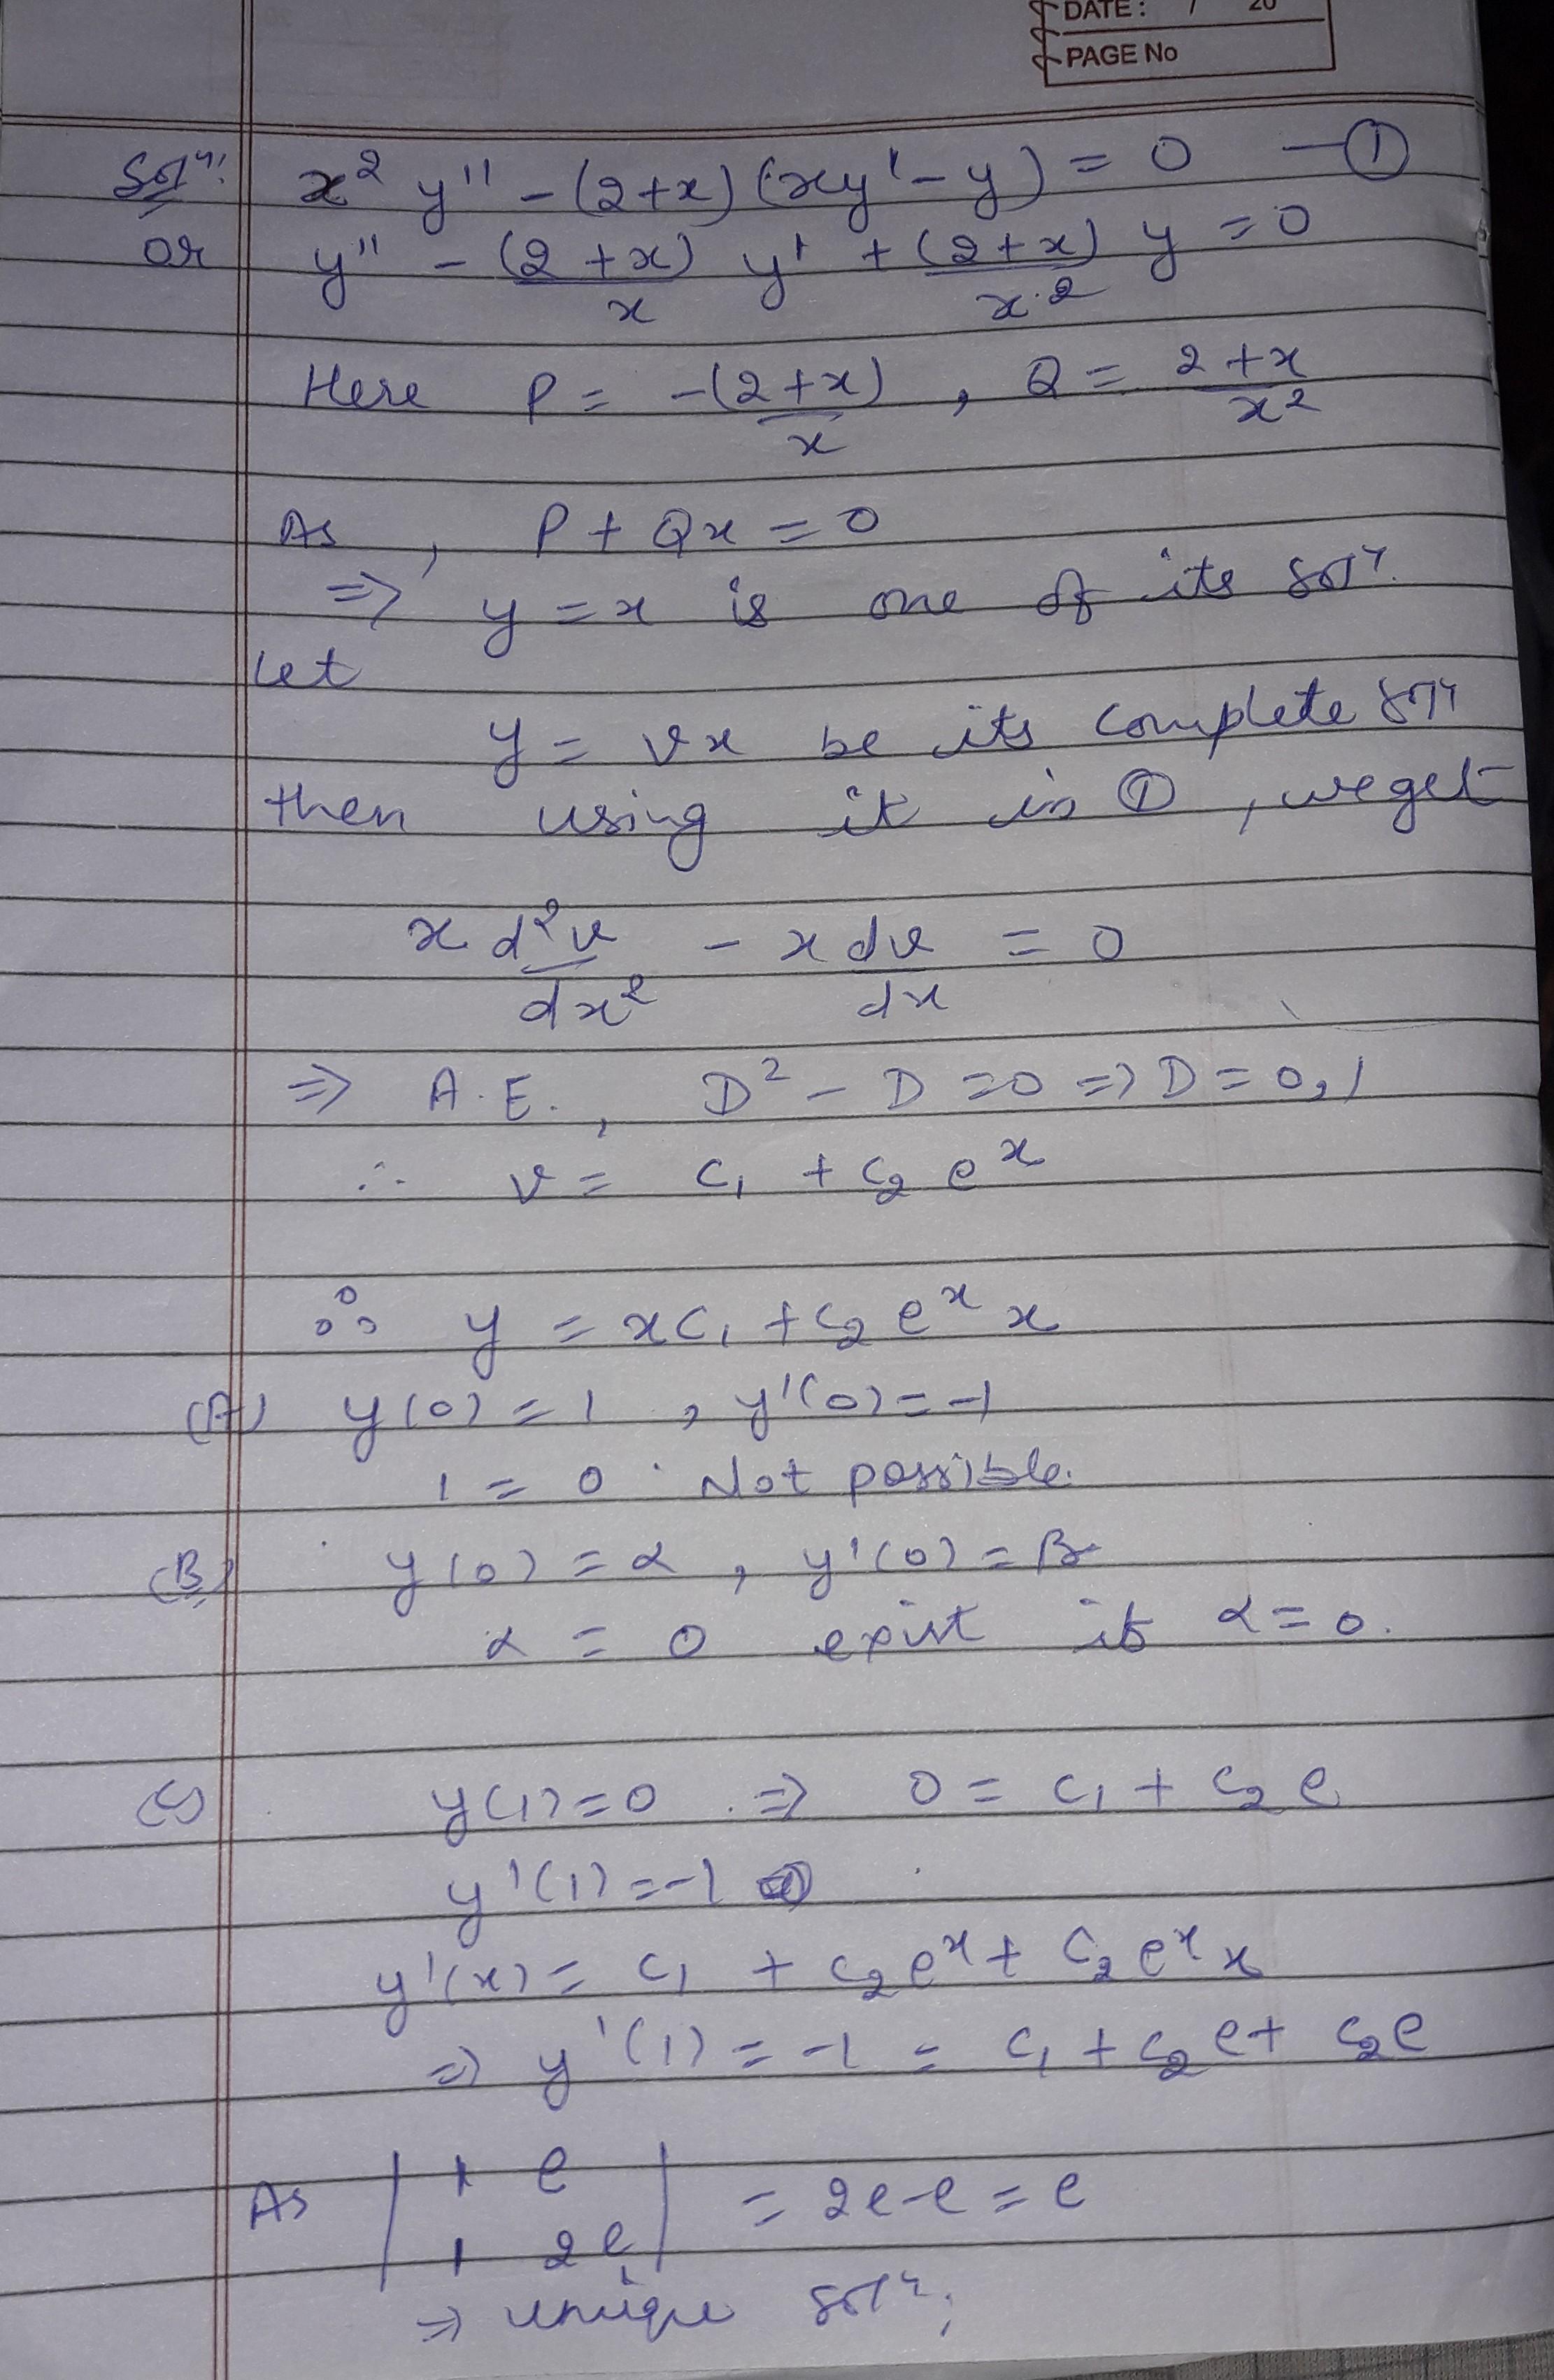 DATE: / 20
PAGE No
Solⁿ: x² y'' - (2+x) (xy' - y) = 0 — ①
or y'' - (2+x)/x y' + (2+x)/x² y = 0
Here P = -(2+x)/x , Q = 2+x/x²
As , P + Qx = 0
⇒ y = x is one of its solⁿ.
Let
y = vx be its complete solⁿ
then using it in ① , we get
x d²v/dx² - x dv/dx = 0
⇒ A.E. , D² - D = 0 ⇒ D = 0, 1
∴ v = c₁ + c₂ eˣ
∴ y = xc₁ + c₂ eˣ x
(A) y(0) = 1 , y'(0) = -1
1 = 0 . Not possible.
(B) y(0) = α , y'(0) = β
α = 0 exist if α = 0.
(C) y(1) = 0 . ⇒ 0 = c₁ + c₂ e
y'(1) = -1
y'(x) = c₁ + c₂ eˣ + c₂ eˣ x
⇒ y'(1) = -1 = c₁ + c₂ e + c₂ e
As | 1 e |
| 1 2e | = 2e - e = e
⇒ unique solⁿ.